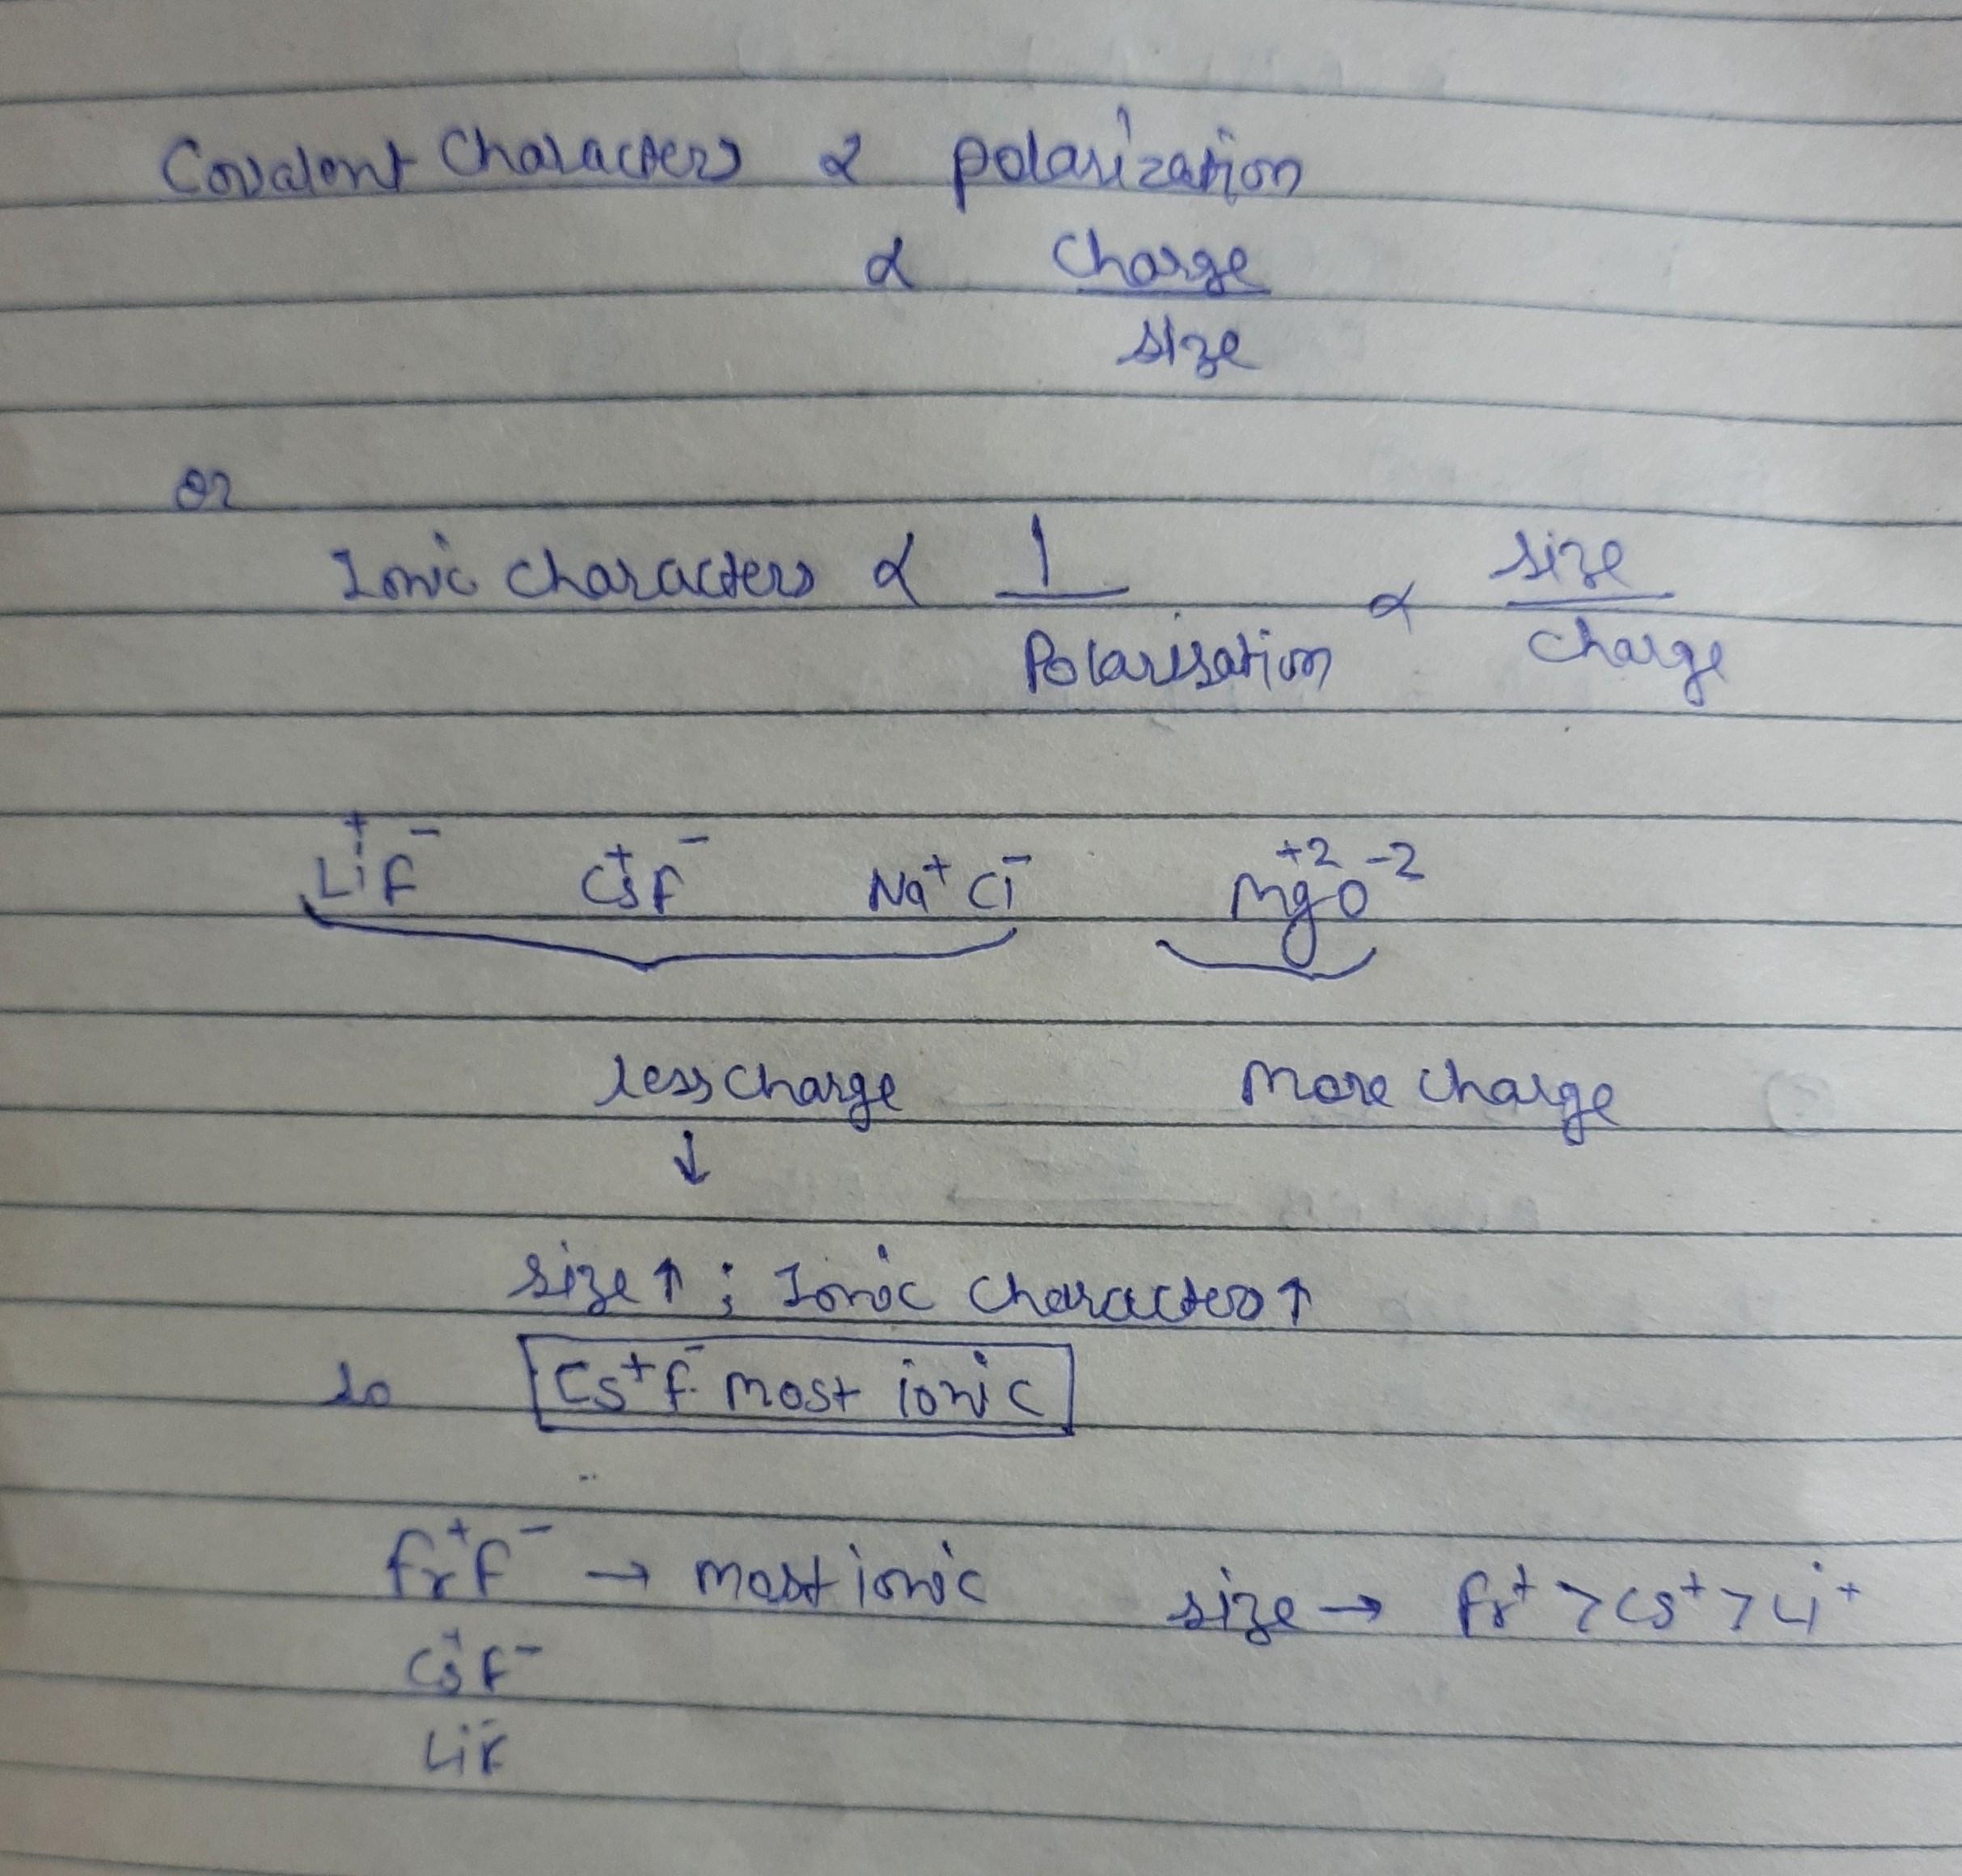 Covalent Characters ∝ polarization
∝ Charge
size
or
Ionic characters ∝ 1 / Polarisation ∝ size / charge
Li⁺F⁻ Cs⁺F⁻ Na⁺Cl⁻ Mg⁺²O⁻²
less charge more charge
↓
size↑ ; Ionic characters↑
so Cs⁺F⁻ most ionic
Fr⁺F⁻ → most ionic size → Fr⁺ > Cs⁺ > Li⁺
Cs⁺F⁻
LiF